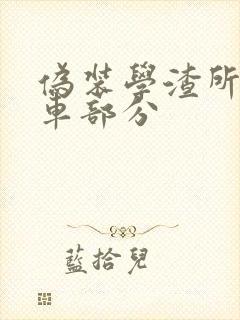 偽裝學渣所
車部分
藍拾兒